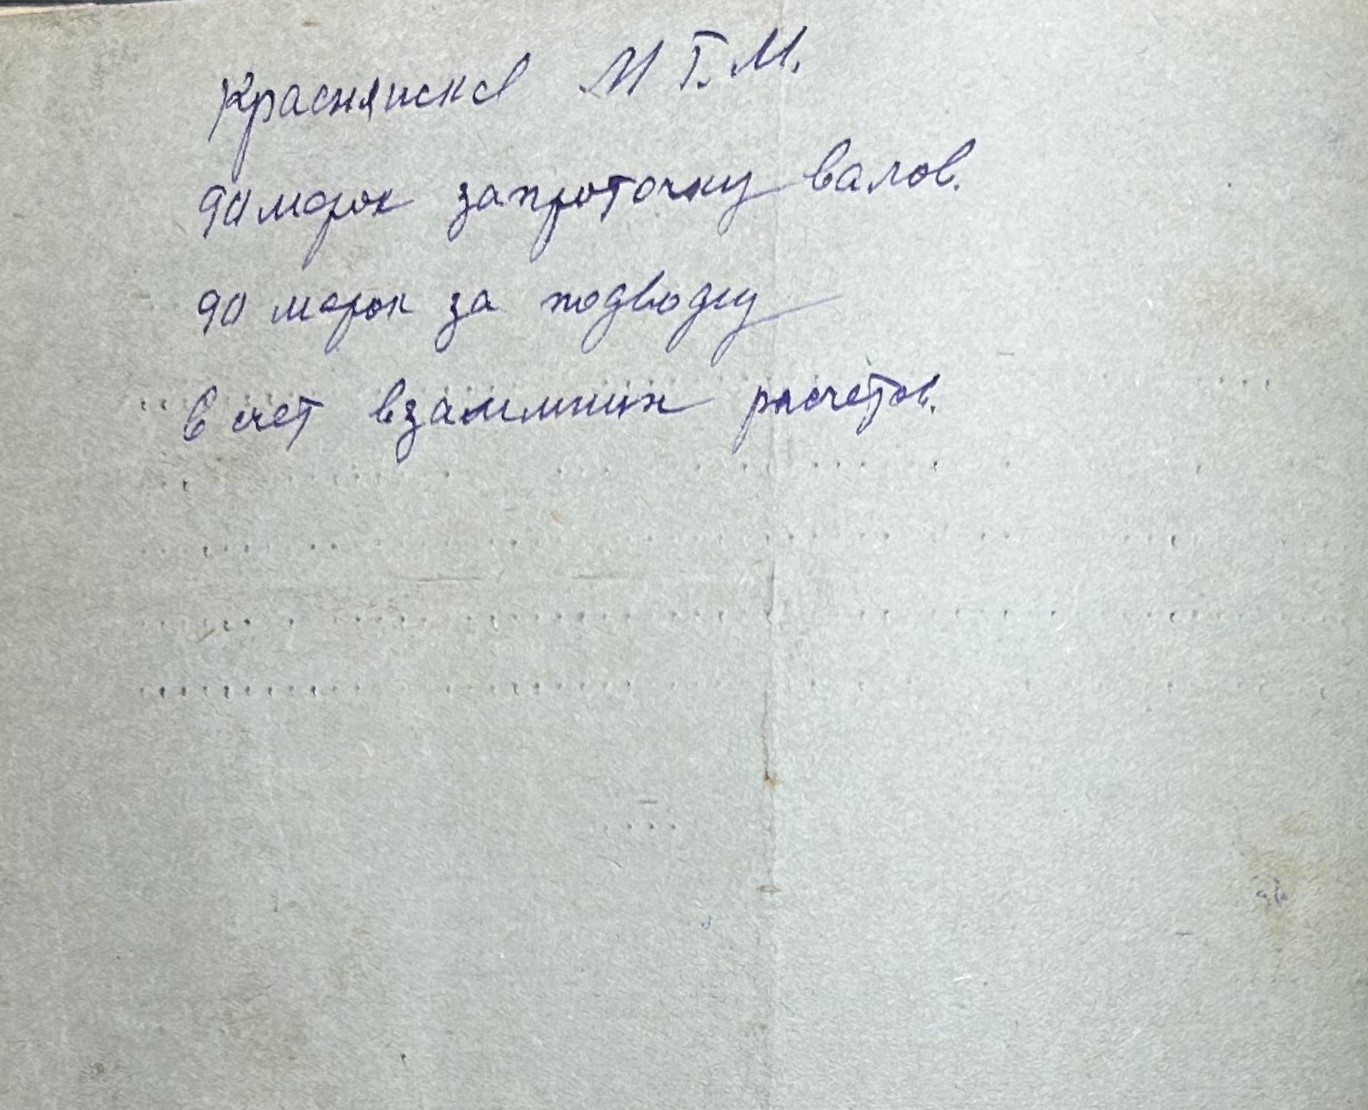 Краснянска МТ.М.
90 марок за проточку валов.
90 марок за подводку
в счет взаимных расчетов.